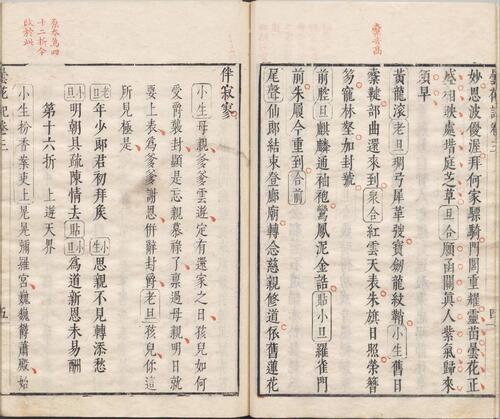 妙思波優渥拜何家驟騎門閭重耀靈苗曇花正
盛相映處堦庭芝草旦合願函關眞人紫氣歸來
須早
黃龍滚老旦琱弓犀革號寶劒龍紋鞘小生舊日
櫜鞬部曲還來到衆合紅雲天表朱旗日照榮簪
笏寵林壑加封號
前腔旦麒麟通袖袍鸞鳳泥金誥貼小旦羅雀門
前朱履今重到合前
尾聲仙郎結束登廊廟轉念慈親修道依舊蓮花
伴寂寥
小生母親爹爹雲遊定有還家之日孩兒如何
受爵襲封顯是忘親慕祿了禀過母親明日就
要上表爲爹爹謝恩併辭封爵老旦孩兒你這
所見極是
老旦年少郎君初拜矦小生思親不見轉添愁
小旦明朝具疏陳情去貼小旦爲道新恩未易酬
第十六折 上遊天界
小生粉香案吏上晃晃彌羅宮巍巍欝蕭殿始
曇花記卷三 五